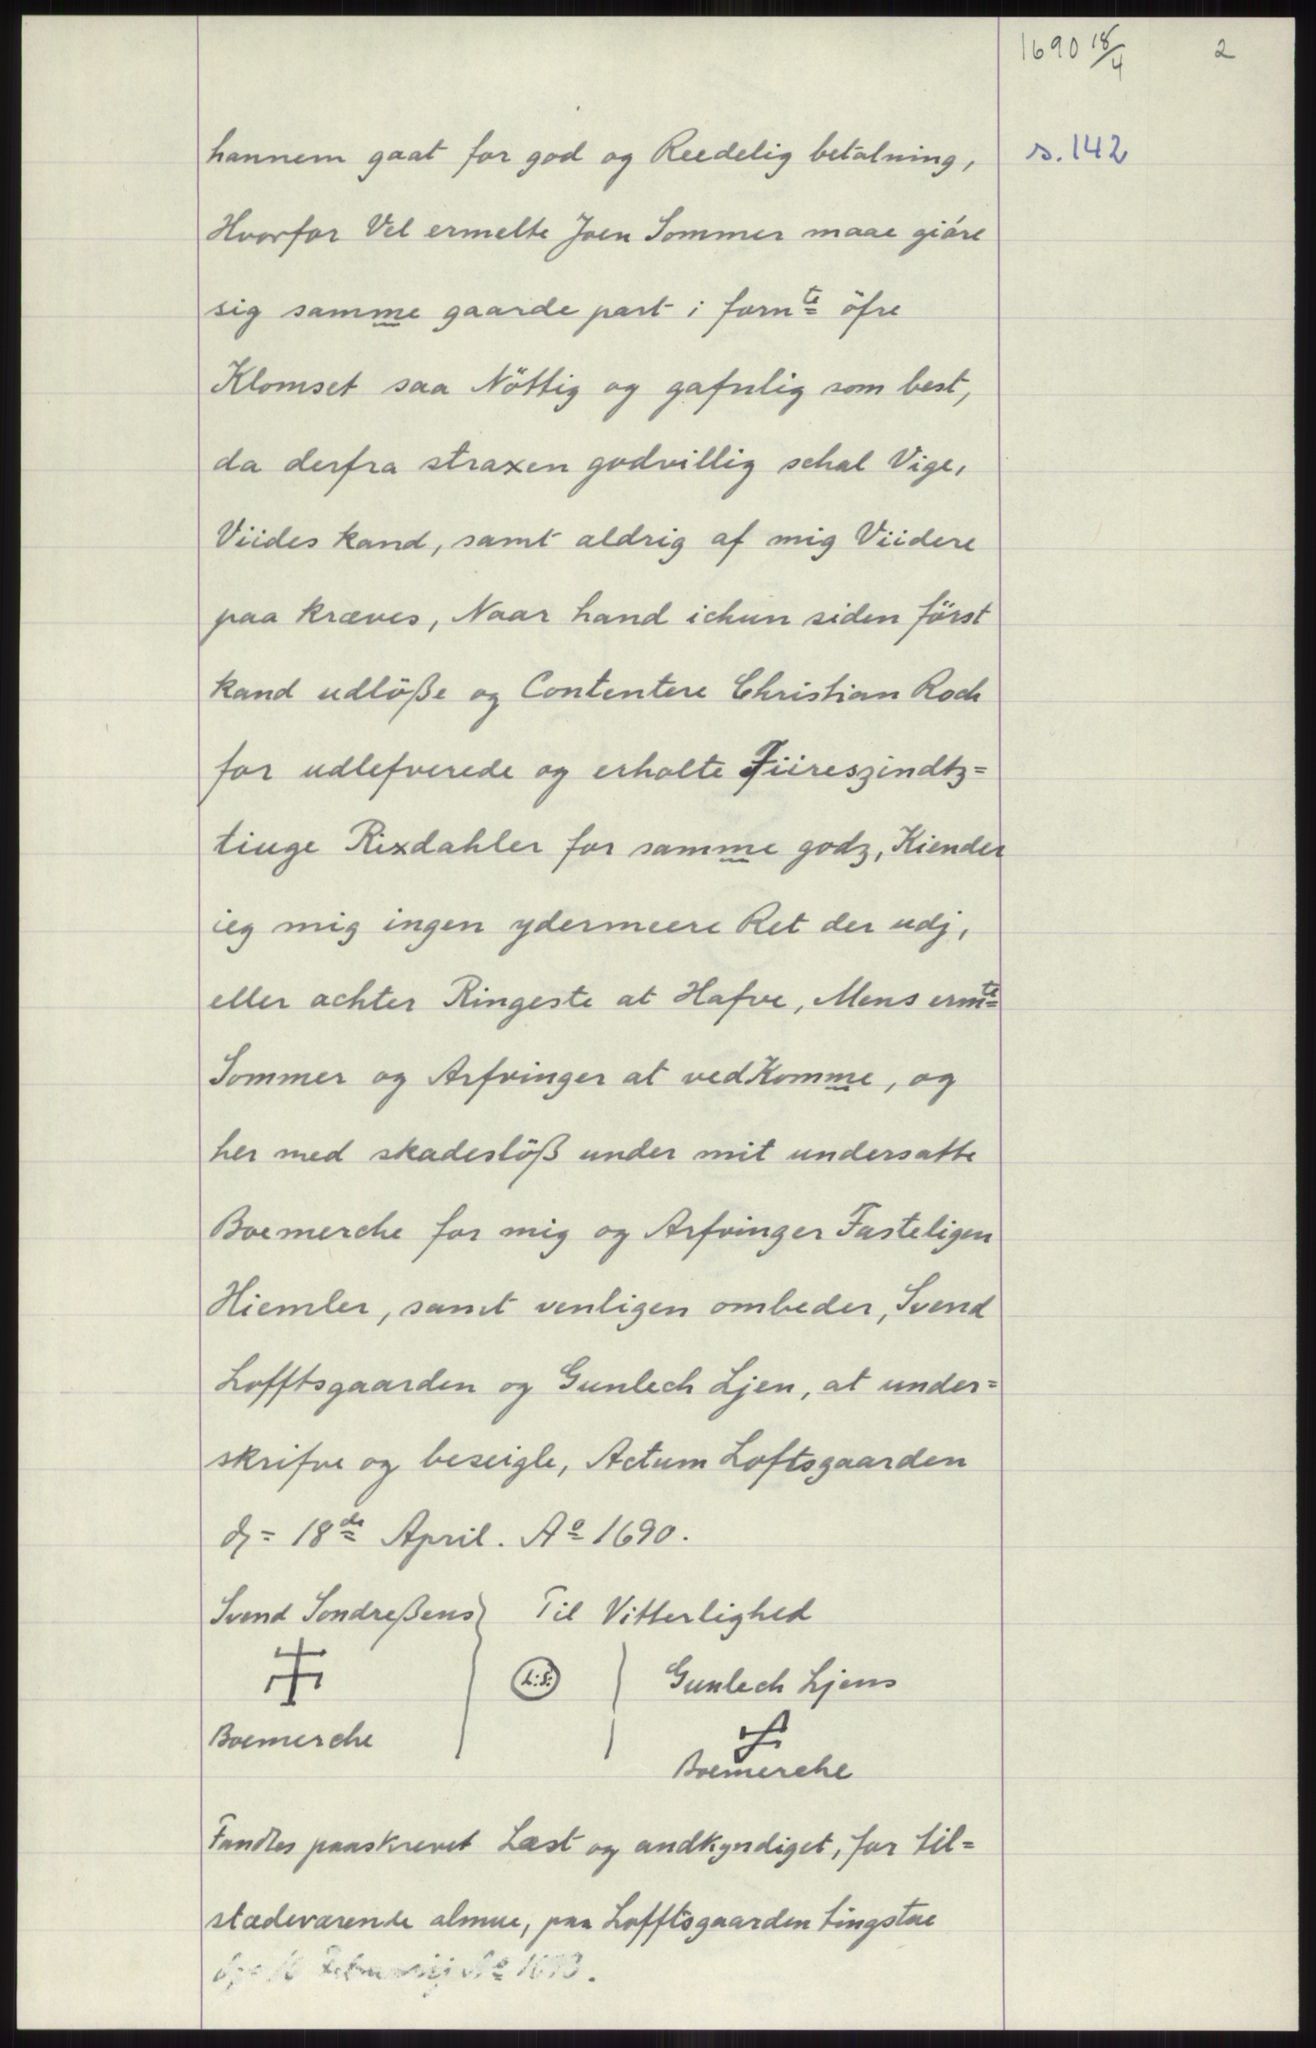 1690 18/4 2
hannem gaat for god og Reedelig betalning, s. 142
Hvorfor Vel ermelte Joen Sommer maae gióre
sig samme gaarde part i fornte öfre
Klomset saa Nöttig og gafnlig som best,
da derfra straxen godvillig schal Vige,
Viides kand, samt aldrig af mig Viidere
paa kræves, Naar hand ichun siden först
kand udlöße og Contentere Christian Roch
for udlefverede og erholte Fiireszindtz=
tiuge Rixdahler for samme godz, Kiender
ieg mig ingen ydermeere Ret der udj,
eller achter Ringeste at Hafve, Mens ermte
Sommer og Arfvinger at vedKomme, og
her med skadeslöß under mit undersatte
Boemerche for mig og Arfvinger Fasteligen
Hiemler, samt venligen ombeder, Svend
Lofftsgaarden og Gunlech Ljen, at under=
skrifve og beseigle, Actum Loftsgaarden
d= 18de April. Ao 1690.
Svend Sondreßens Til Vitterlighed
L:S: Gunlech Ljens
Boemerche
Boemerche
Fandtes paaskrevet Læst og andkyndiget, for til=
stædeværende almue, paa Lofftsgaarden tingstue
16 Februarij Ao